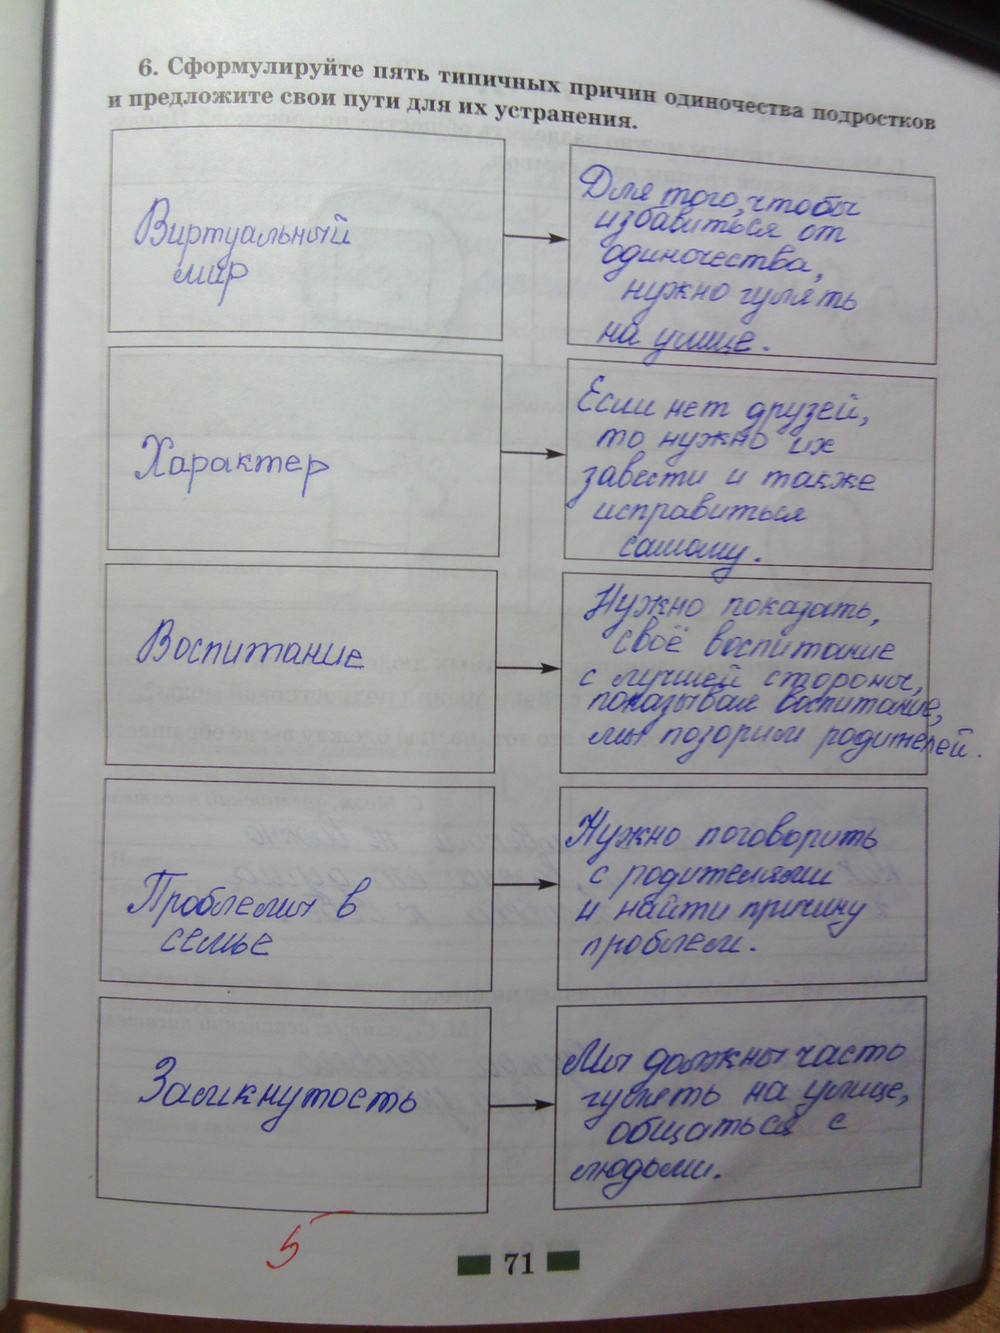 6. Сформулируйте пять типичных причин одиночества подростков
и предложите свои пути для их устранения.
Виртуальный
мир
Для того, чтобы
избавиться от
одиночества,
нужно гулять
на улице.
Характер
Если нет друзей,
то нужно их
завести и также
исправиться
самому.
Воспитание
Нужно показать,
своё воспитание
с лучшей стороны,
показывая воспитание,
мы позорим родителей.
Проблемы в
семье
Нужно поговорить
с родителями
и найти причину
проблем.
Замкнутость
Мы должны часто
гулять на улице,
общаться с
людьми.
5
71